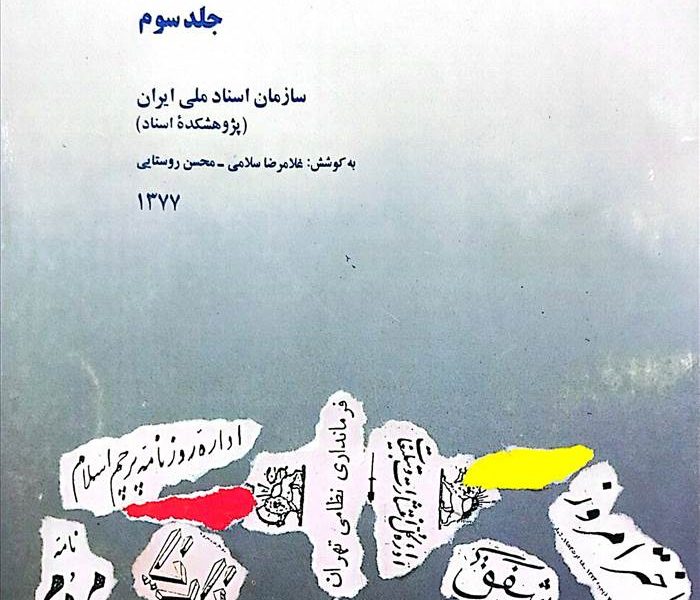 جلد سوم
سازمان اسناد ملی ایران
(پژوهشکدهٔ اسناد)
به کوشش: غلامرضا سلامی - محسن روستایی
۱۳۷۷
اداره روزنامه پرچم اسلام
فرمانداری نظامی تهران
اداره کل انتشارات و تبلیغات
اختر امروز
نامه
مردم
شفق